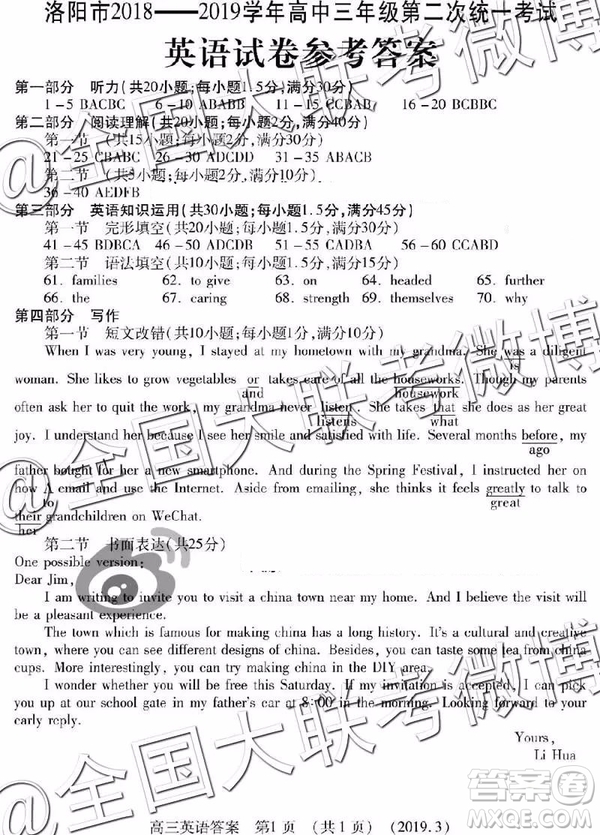 洛阳市2018——2019学年高中三年级第二次统一考试
英语试卷参考答案
第一部分 听力(共20小题;每小题1.5分,满分30分)
1-5 BACBC 6-10 ABABB 11-15 CCBAB 16-20 BCBBC
第二部分 阅读理解(共20小题;每小题2分,满分40分)
第一节 (共15小题;每小题2分,满分30分)
21-25 CBABC 26-30 ADCDD 31-35 ABACB
第二节 (共5小题;每小题2分,满分10分)
36-40 AEDFB
第三部分 英语知识运用(共30小题;每小题1.5分,满分45分)
第一节 完形填空(共20小题;每小题1.5分,满分30分)
41-45 BDBCA 46-50 ADCDB 51-55 CADBA 56-60 CCABD
第二节 语法填空(共10小题;每小题1.5分,满分15分)
61. families 62. to give 63. on 64. headed 65. further
66. the 67. caring 68. strength 69. themselves 70. why
第四部分 写作
第一节 短文改错(共10小题;每小题1分,满分10分)
When I was very young, I stayed at my hometown with my grandma. She was a diligent
is
woman. She likes to grow vegetables or takes care of all the houseworks. Though my parents
and housework
often ask her to quit the work, my grandma never listen. She takes that she does as her great
listens what
joy. I understand her because I see her smile and satisfied with life. Several months before, my
ago
father bought for her a new smartphone. And during the Spring Festival, I instructed her on
how ∧ email and use the Internet. Aside from emailing, she thinks it feels greatly to talk to
to great
their grandchildren on WeChat.
her
第二节 书面表达(共25分)
One possible version:
Dear Jim,
I am writing to invite you to visit a china town near my home. And I believe the visit will
be a pleasant experience.
The town which is famous for making china has a long history. It's a cultural and creative
town, where you can see different designs of china. Besides, you can taste some tea from china
cups. More interestingly, you can try making china in the DIY area.
I wonder whether you will be free this Saturday. If my invitation is accepted, I can pick
you up at our school gate in my father's car at 8:00 in the morning. Looking forward to your
early reply.
Yours,
Li Hua
高三英语答案 第1页 (共1页) (2019.3)
@全国大联考微博
@全国大联考微博
@全国大联考微博
答案圈
MXQE.COM